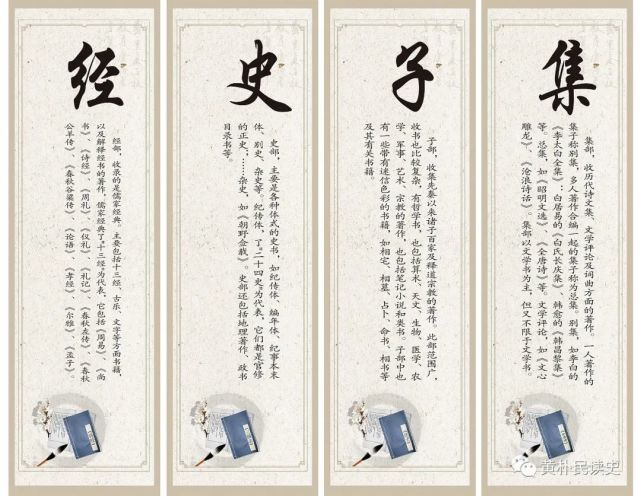 经
经部，收录的是儒家经典。主要包括十三经、古乐、文字等方面书籍，
以及解释经书的著作。儒家经典了"十三经"为代表，它包括《周易》、《尚
书》、《诗经》、《周礼》、《仪礼》、《礼记》、《春秋左传》、《春秋
公羊传》、《春秋谷梁传》、《论语》、《孝经》、《尔雅》、《孟子》。
史
史部，主要是各种体式的史书，如纪传体、编年体、纪事本末
体、别史、杂史等。纪传体，了"二十四史"为代表，它们都是官修
的正史；……杂史，如《朝野佥载》。史部还包括地理著作、政书
目录书等。
子
子部，收集先秦以来诸子百家及释道宗教的著作。此部范围广，
收书也比较复杂，有哲学书，也包括算术、天文、生物、医学、农
学、军事、艺术、宗教的著作，也包括笔记小说和类书。子部中也
有一些带有迷信色彩的书籍，如相宅、相墓、占卜、命书、相书等
及其有关书籍。
集
集部，收历代诗文集、文学评论及词曲方面的著作，一人著作的
集子称别集，多人著作合编一起的集子称为总集。别集，如李白的
《李太白全集》；白居易的《白氏长庆集》、韩愈的《韩昌黎集》
等。总集，如《昭明文选》、《全唐诗》等。文学评论，如《文心
雕龙》、《沧浪诗话》。集部以文学书为主，但又不限于文学书。
黄朴民读史